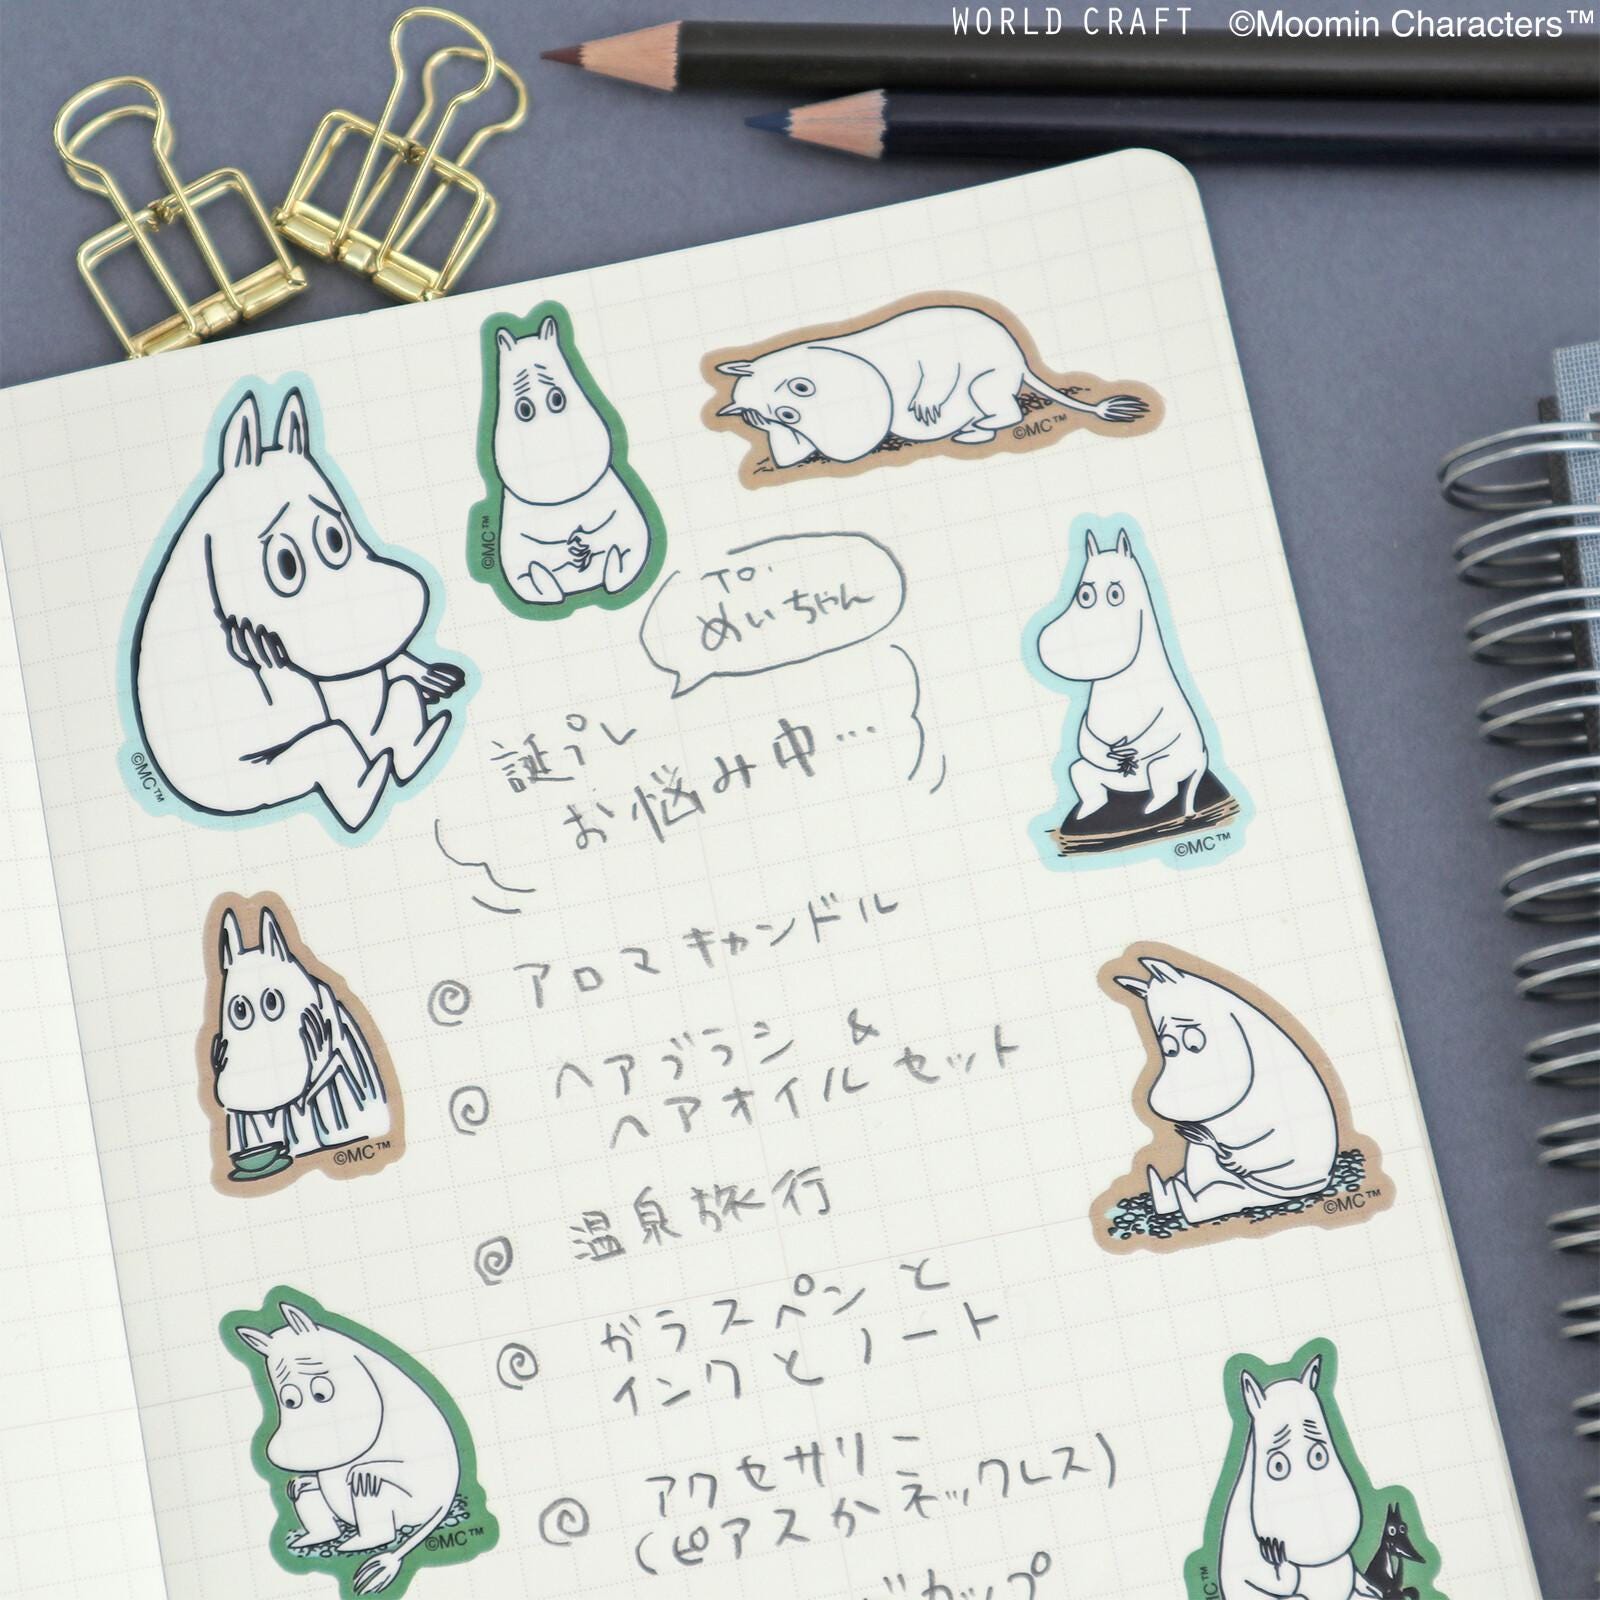 WORLD CRAFT ©Moomin Characters™
©MC™
©MC™
©MC™
To.
めいちゃん
©MC™
©MC™
誕プレ
お悩み中…
アロマキャンドル
©MC™
ヘアブラシ &
ヘアオイルセット
©MC™
温泉旅行
ガラスペンと
インクとノート
©MC™
アクセサリー
(ピアスかネックレス)
©MC™
カップ